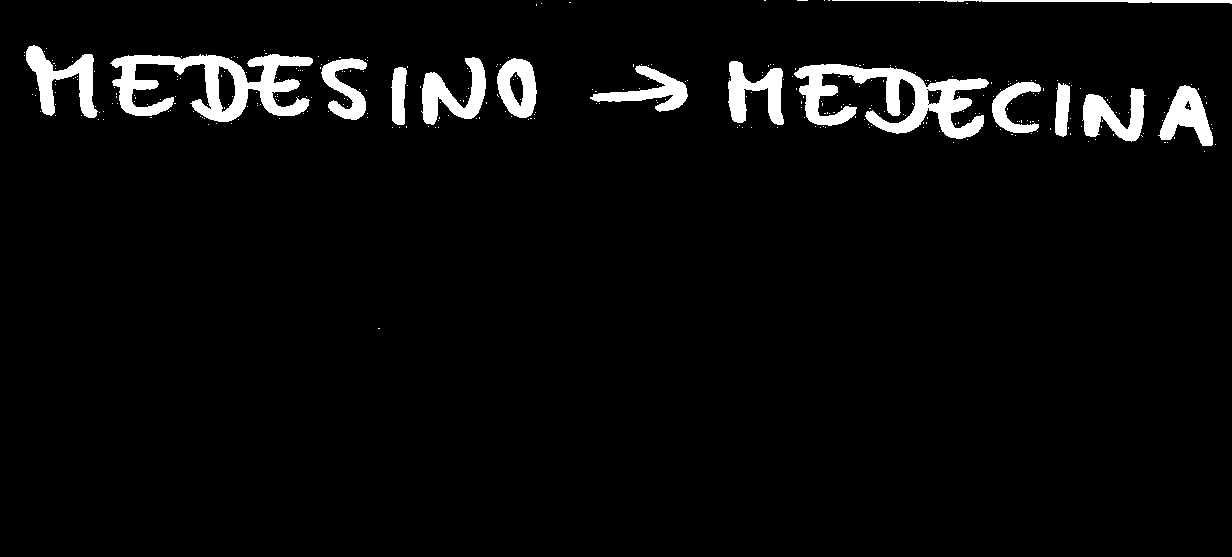 MEDESINO → MEDECINA